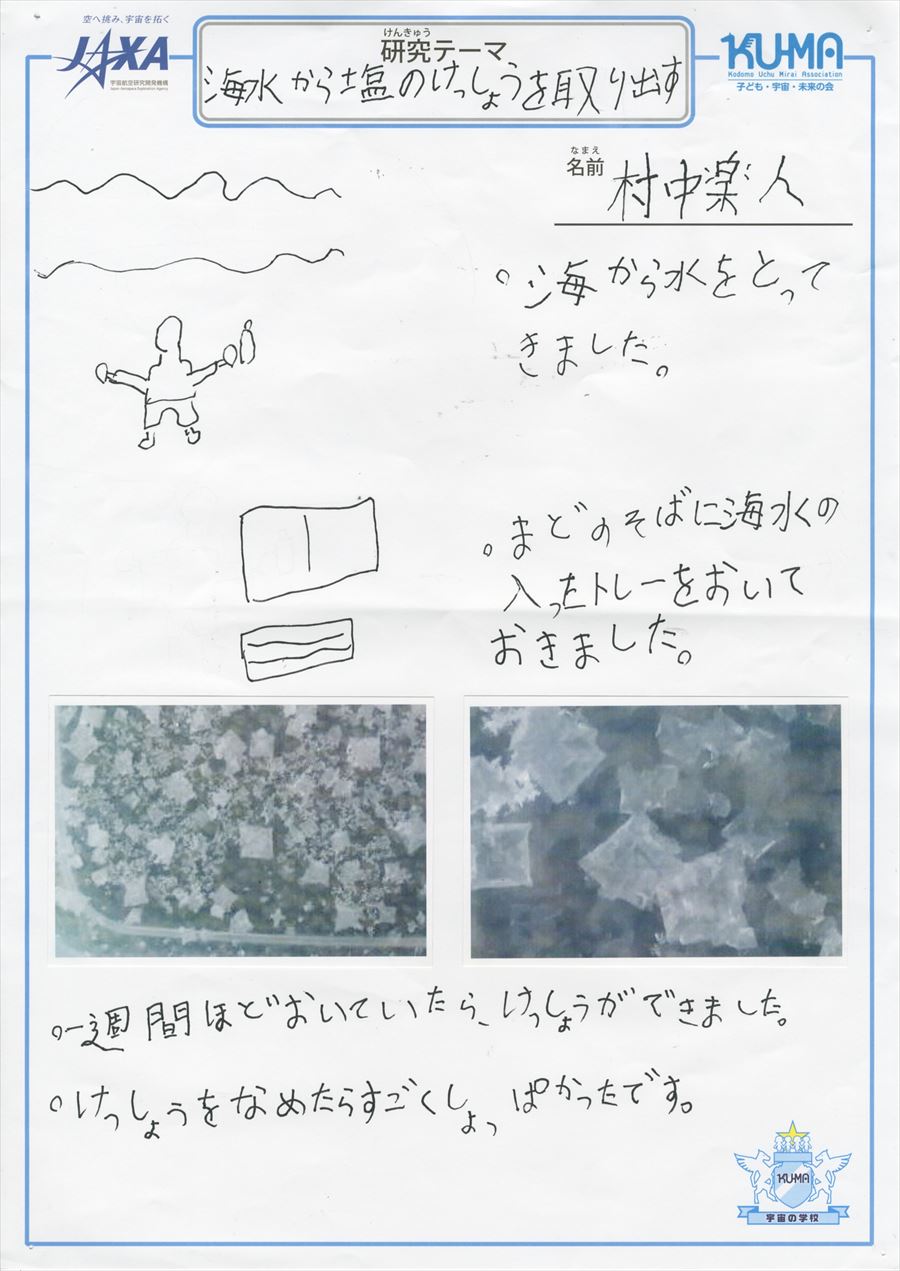 空へ挑み、宇宙を拓く
JAXA
宇宙航空研究開発機構
Japan Aerospace Exploration Agency
けんきゅう
研究テーマ
海水から塩のけっしょうを取り出す
KU-MA
Kodomo Uchu Mirai Association
子ども・宇宙・未来の会
なまえ
名前 村中楽人
○海から水をとって
きました。
○まどのそばに海水の
入ったトレーをおいて
おきました。
○一週間ほどおいていたら、けっしょうができました。
○けっしょうをなめたらすごくしょっぱかったです。
KU-MA
宇宙の学校